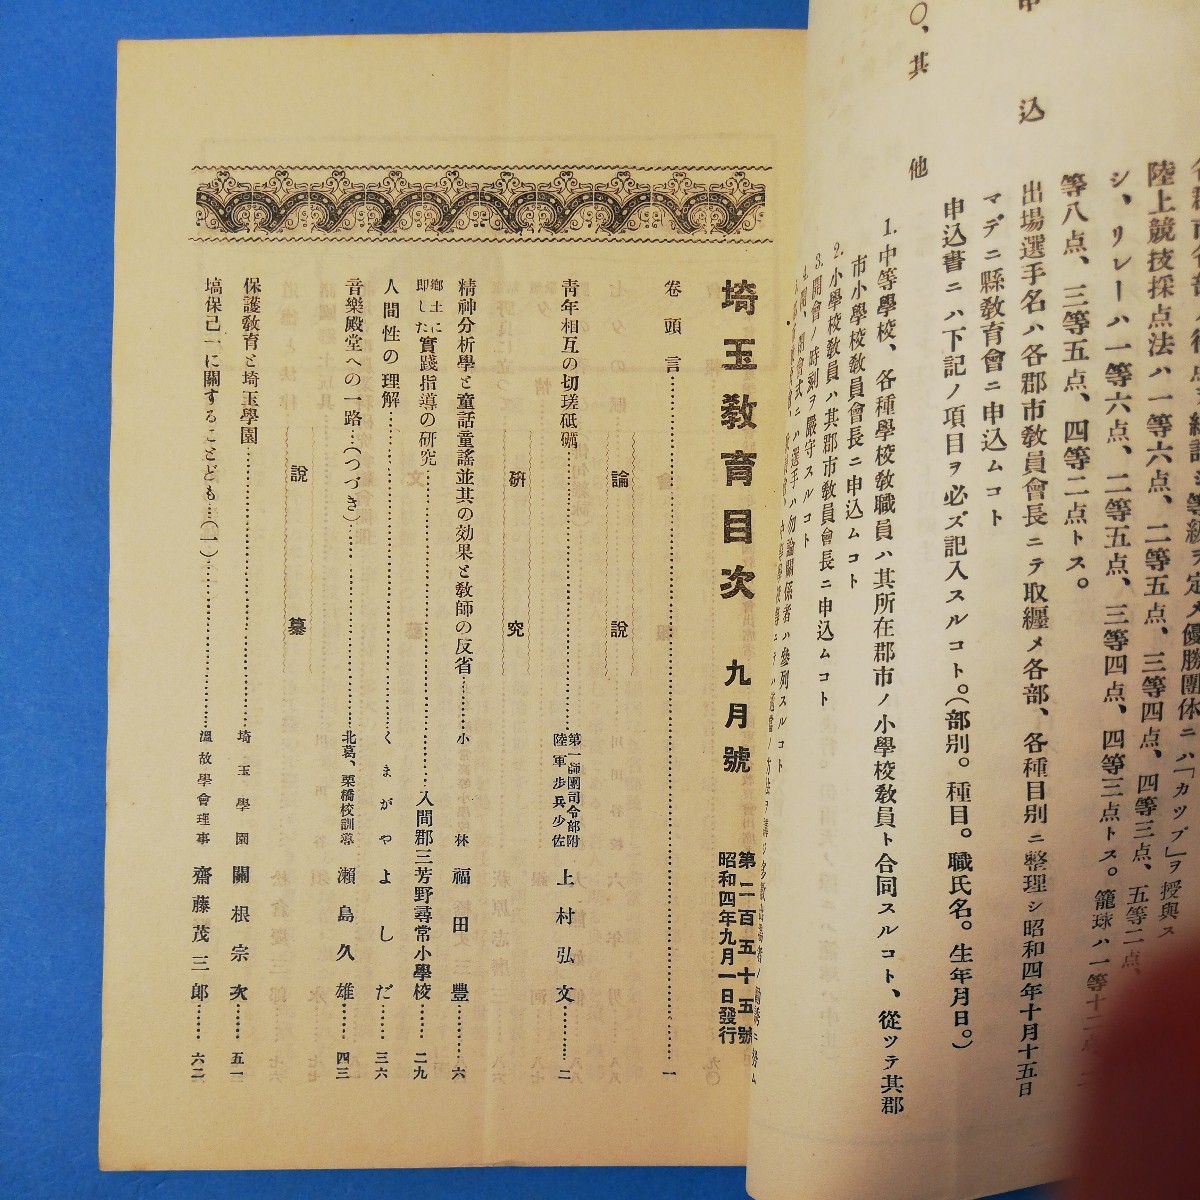 申込
〇、其他
陸上競技採点法ハ一等六点、二等五点、三等四点、四等三点、五等二点、
シ、リレーハ一等六点、二等五点、三等四点、四等三点トス。籠球ハ一等十二
等八点、三等五点、四等二点トス。
出場選手名ハ各郡市教員會長ニテ取纒メ各部、各種目別ニ整理シ昭和四年十月十五日
マデニ縣教育會ニ申込ムコト
申込書ニハ下記ノ項目ヲ必ズ記入スルコト。(部別。種目。職氏名。生年月日。)
1. 中等學校、各種學校教職員ハ其所在郡市ノ小學校教員ト合同スルコト、從ツテ其郡
市小學校教員會長ニ申込ムコト
2. 小學校教員ハ其郡市教員會長ニ申込ムコト
3. 開會ノ時刻ヲ嚴守スルコト
4. 開、閉會式ニハ選手ハ勿論關係者ハ參列スルコト
埼玉教育目次 九月號
第二百五十五號
昭和四年九月一日發行
卷頭言……一
論說
青年相互の切瑳砥礪……第一師團司令部附陸軍步兵少佐 上村弘文……二
硏究
精神分析學と童話童謠並其の効果と敎師の反省……小林 福田豐……六
鄕土に即した實踐指導の研究……入間郡三芳野尋常小學校……二九
人間性の理解……くまがやよしだ……三六
音樂殿堂への一路…(つづき)……北葛、栗橋校訓導 瀨島久雄……四三
說纂
保護敎育と埼玉學園……埼玉學園 關根宗次……五一
塙保己一に關することども…(一)……溫故學會理事 齋藤茂三郞……六二